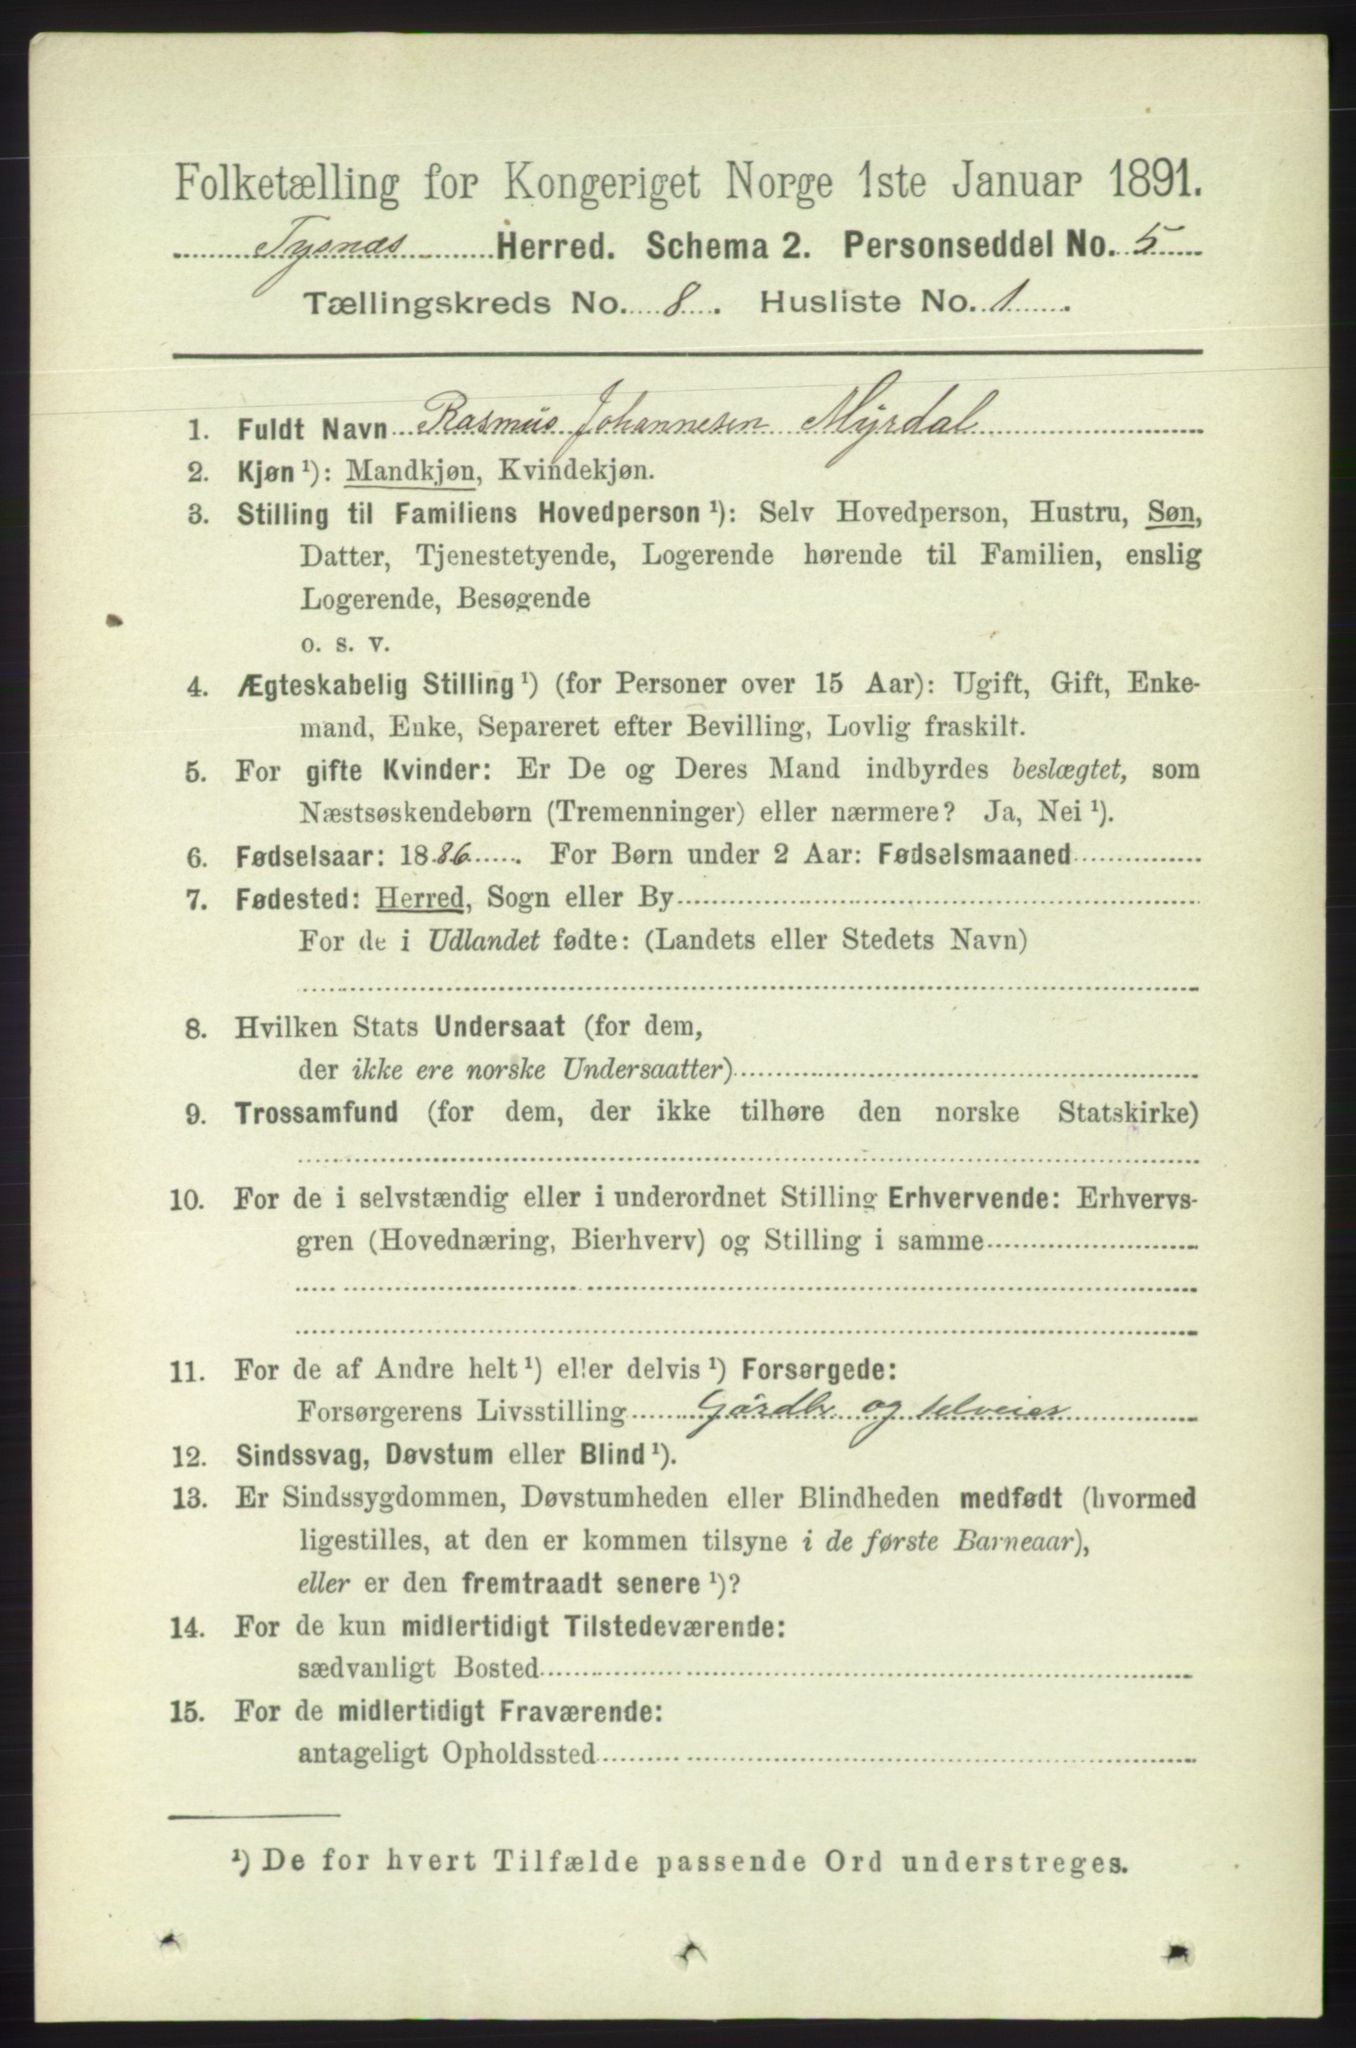 Folketælling for Kongeriget Norge 1ste Januar 1891.
Tysnæs Herred. Schema 2. Personseddel No. 5
Tællingskreds No. 8. Husliste No. 1.
1. Fuldt Navn Rasmus Johannesen Myrdal
2. Kjøn ¹): Mandkjøn, Kvindekjøn.
3. Stilling til Familiens Hovedperson ¹): Selv Hovedperson, Hustru, Søn,
Datter, Tjenestetyende, Logerende hørende til Familien, enslig
Logerende, Besøgende
o. s. v.
4. Ægteskabelig Stilling ¹) (for Personer over 15 Aar): Ugift, Gift, Enke-
mand, Enke, Separeret efter Bevilling, Lovlig fraskilt.
5. For gifte Kvinder: Er De og Deres Mand indbyrdes beslægtet, som
Næstsøskendebørn (Tremenninger) eller nærmere? Ja, Nei ¹).
6. Fødselsaar: 1886. For Børn under 2 Aar: Fødselsmaaned
7. Fødested: Herred, Sogn eller By
For de i Udlandet fødte: (Landets eller Stedets Navn)
8. Hvilken Stats Undersaat (for dem,
der ikke ere norske Undersaatter)
9. Trossamfund (for dem, der ikke tilhøre den norske Statskirke)
10. For de i selvstændig eller i underordnet Stilling Erhvervende: Erhvervs-
gren (Hovednæring, Bierhverv) og Stilling i samme
11. For de af Andre helt ¹) eller delvis ¹) Forsørgede:
Forsørgerens Livsstilling Gårdbr og selveier
12. Sindssvag, Døvstum eller Blind ¹).
13. Er Sindssygdommen, Døvstumheden eller Blindheden medfødt (hvormed
ligestilles, at den er kommen tilsyne i de første Barneaar),
eller er den fremtraadt senere ¹)?
14. For de kun midlertidigt Tilstedeværende:
sædvanligt Bosted
15. For de midlertidigt Fraværende:
antageligt Opholdssted
¹) De for hvert Tilfælde passende Ord understreges.